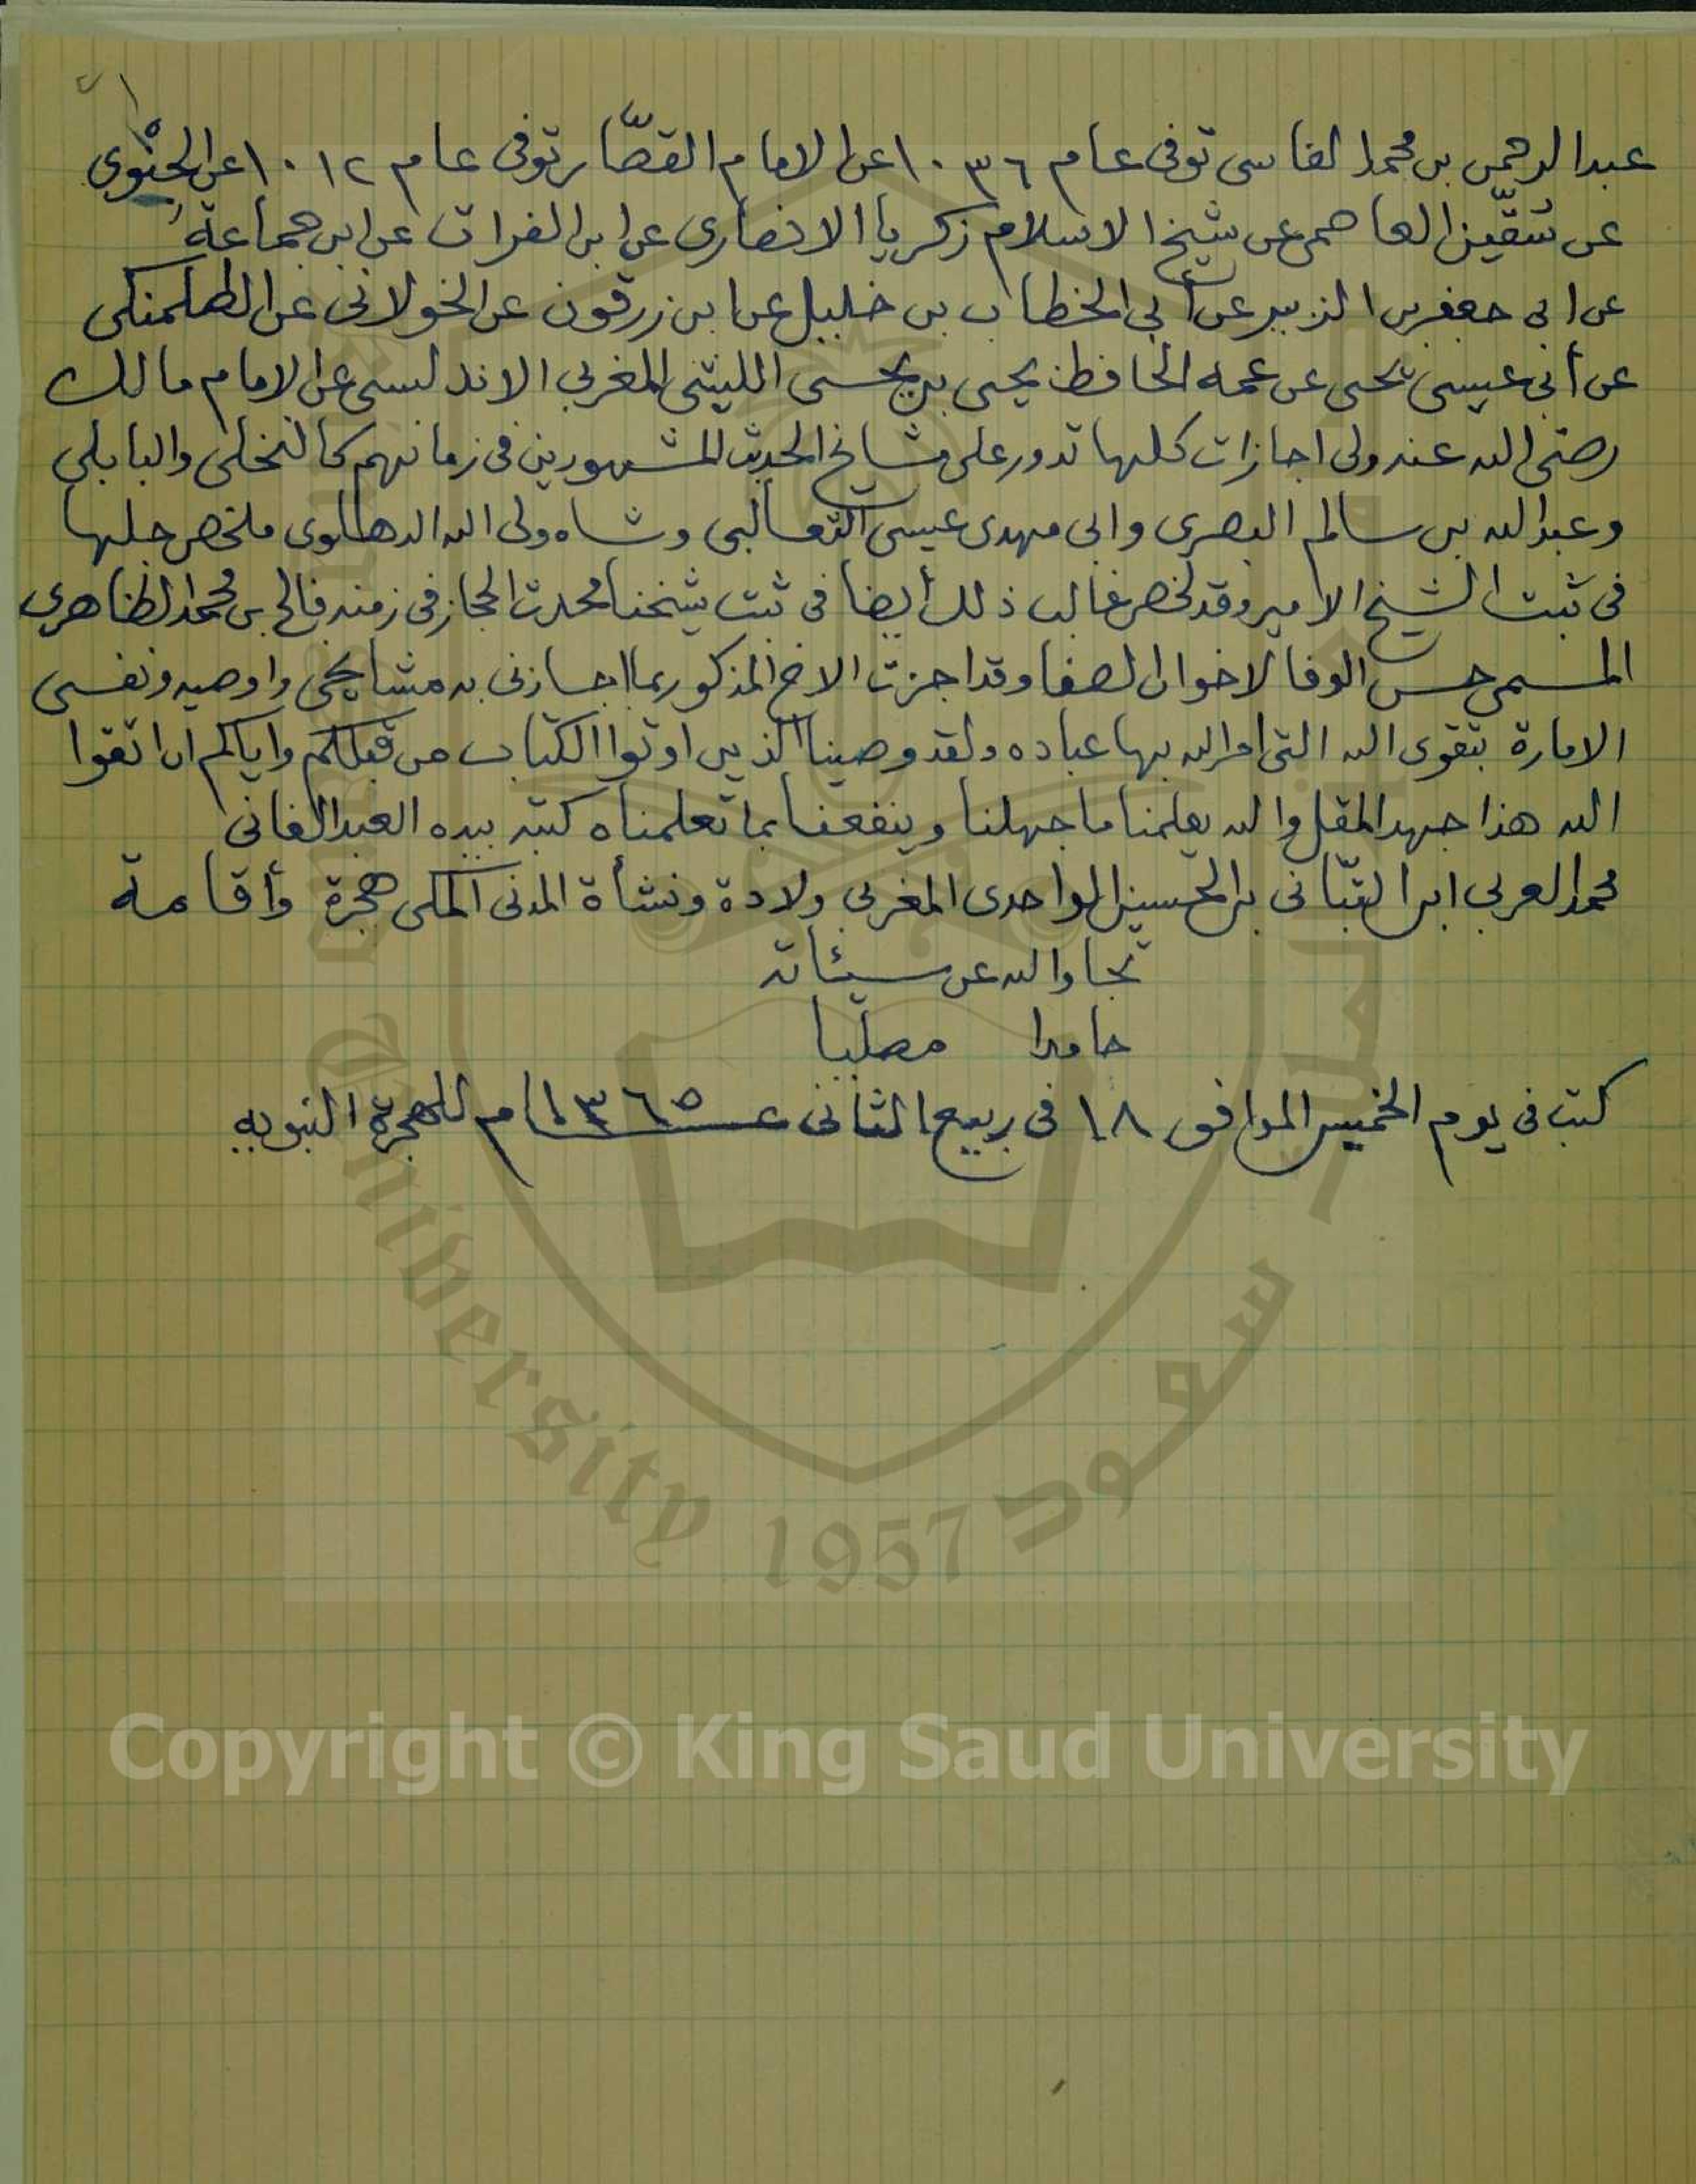 عبد الرحمن بن محمد الفاسى توفى عام ١٠٣٦ عن الامام القصّار توفى عام ١٠١٢ عن الجنْوى
عن سقّين العاصمى عن شيخ الاسلام زكريا الانصارى عن ابن الفرات عن ابن جماعة
عن ابى جعفر بن الزبير عن أبي الخطاب بن خليل عن ابن زرقون عن الخولانى عن الطلمنكى
عن أبى عيسى يحيى عن عمه الحافظ يحيى بن يحيى الليثى المغربي الاندلسى عن الامام مالك
رضى الله عنه ولى اجازات كلها تدور على مشايخ الحديث المشهورين فى زمانهم كالنخلى والبابلي
وعبد الله بن سالم البصرى وابى مهدى عيسى الثعالبى وشاه ولى الله الدهلوى ملخص جلها
فى ثبت الشيخ الامير وقد لخص غالب ذلك أيضا فى ثبت شيخنا محدث الحجاز فى زمنه فالح بن محمد الظاهرى
المسمى حسن الوفا لاخوان الصفا وقد اجزت الاخ المذكور بما اجازنى به مشايخى واوصيه ونفسى
الامارة بتقوى الله التى امر الله بها عباده ولقد وصينا الذين اوتوا الكتاب من قبلكم واياكم ان اتقوا
الله هذا جهد المقل والله يعلمنا ما جهلنا وينفعنا بما تعلمناه كتبه بيده العبد الفانى
محمد العربي ابن التبّانى بن الحسين الواحدى المغربى ولادة ونشأة المدنى المكى هجرة وأقامة
تجاوالله عن سيئاته
حامدا مصليا
كتب فى يوم الخميس الموافق ١٨ فى ربيع الثانى عام ١٣٦٥ للهجرة النبويه
University 1957 سعود
Copyright © King Saud University